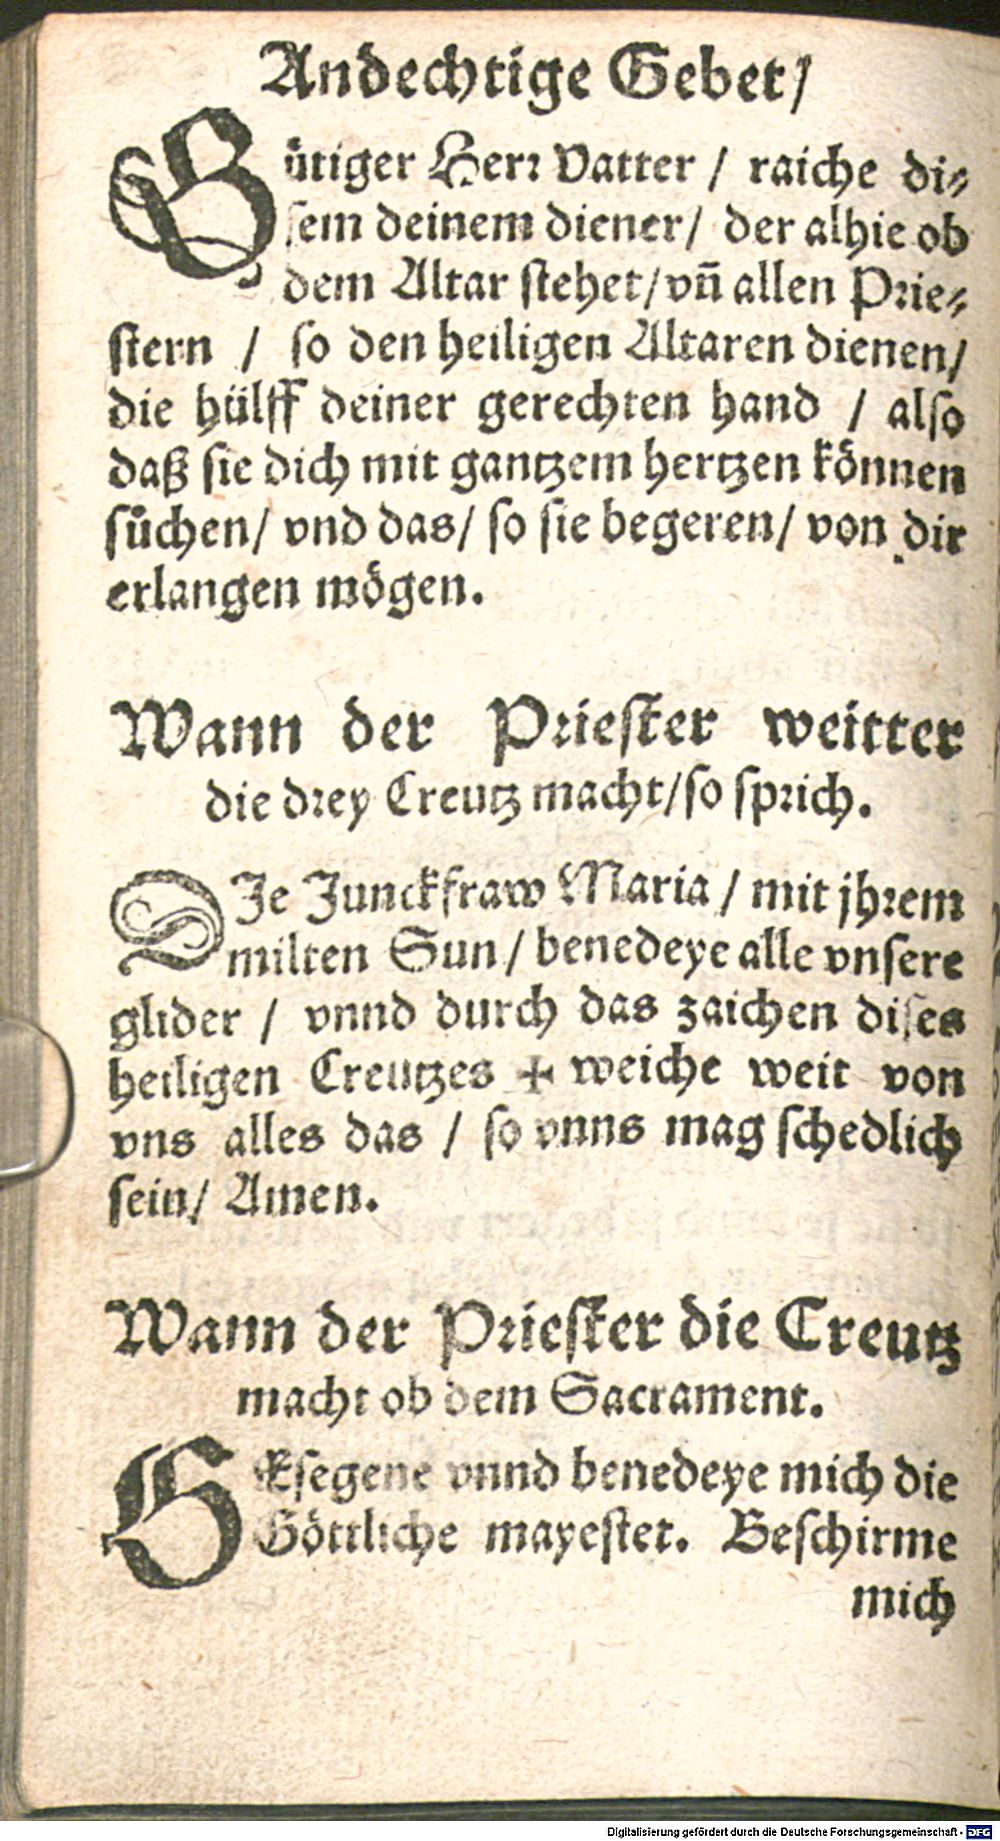 Andechtige Gebet/
Gütiger Herr Vatter / raiche di⸗
sem deinem diener/ der alhie ob
dem Altar stehet/ vñ allen Prie⸗
stern / so den heiligen Altaren dienen/
die hülff deiner gerechten hand / also
daß sie dich mit gantzem hertzen können
sůchen/ vnd das/ so sie begeren/ von dir
erlangen mögen.
Wann der Priester weitter
die drey Creutz macht/ so sprich.
DJe Junckfraw Maria / mit jhrem
milten Sun / benedeye alle vnsere
glider / vnnd durch das zaichen dises
heiligen Creutzes ✚ weiche weit von
vns alles das / so vnns mag schedlich
sein/ Amen.
Wann der Priester die Creutz
macht ob dem Sacrament.
GEsegene vnnd benedeye mich die
Göttliche mayestet. Beschirme
mich
Digitalisierung gefördert durch die Deutsche Forschungsgemeinschaft - DFG